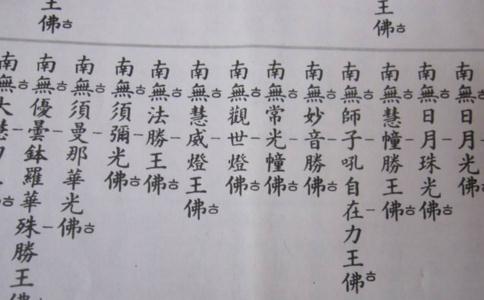 王佛
王佛
南無日月光佛
南無日月珠光佛
南無慧幢勝王佛
南無師子吼自在力王佛
南無妙音勝佛
南無常光幢佛
南無觀世燈佛
南無慧威燈王佛
南無法勝王佛
南無須彌光佛
南無須曼那華光佛
南無優曇鉢羅華殊勝王佛
南無大慧